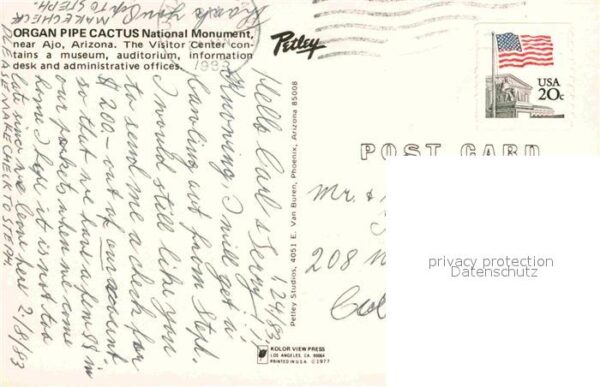 ORGAN PIPE CACTUS National Monument,
near Ajo, Arizona. The Visitor Center con-
tains a museum, auditorium, information
desk and administrative offices.
Petley
USA
20c
POST CARD
Thank you
MAKE CHECK
TO STEPH.
1/24/83
Hello Carl & Leroy!!
Knowing, I will get a
bawling out from Steph.
I would still like you
to send me a check for
$200.- out of our account
so that we have a few $$ in
our pockets when we come
home. I hope it is not too
late since we leave here 2/8/83
PLEASE MAKE CHECK TO STEPH.
Petley Studios, 4051 E. Van Buren, Phoenix, Arizona 85008
KOLOR VIEW PRESS
LOS ANGELES, CA.
PRINTED IN U.S.A. ©1977
Mr. &
208 N
privacy protection
Datenschutz